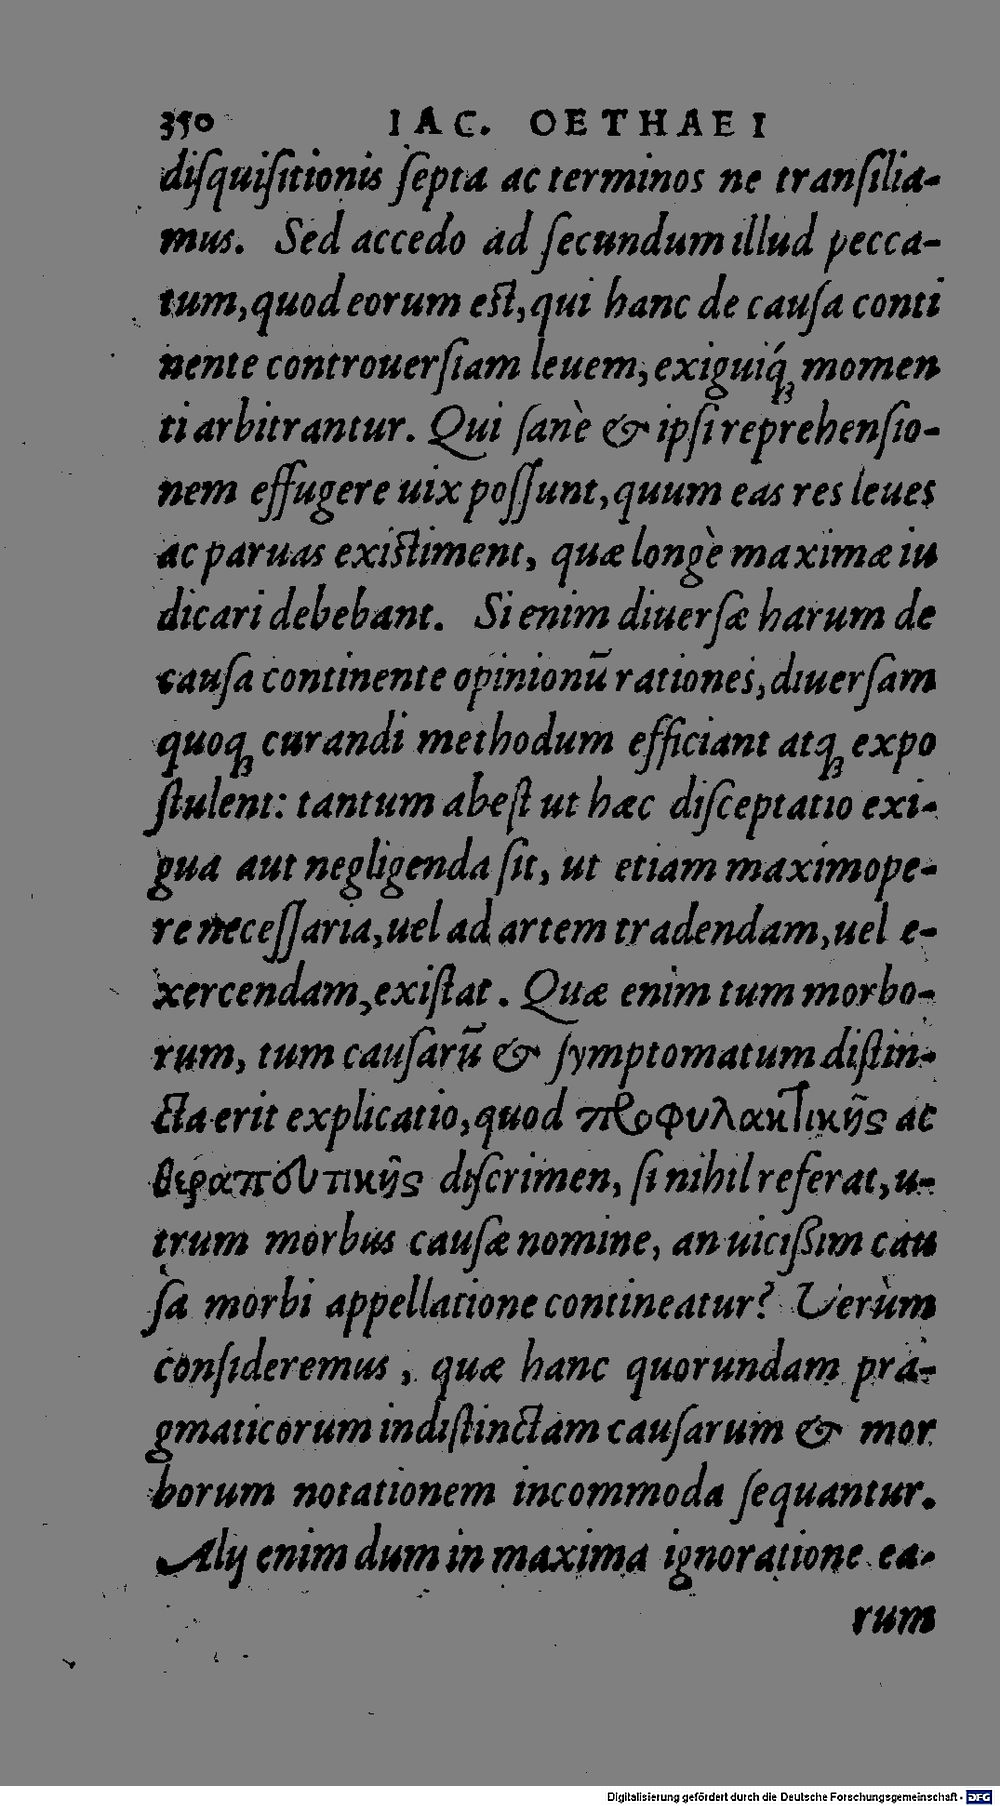 350 IAC. OETHAEI
diſquiſitionis ſepta ac terminos ne tranſilia-
mus. Sed accedo ad ſecundum illud pecca-
tum, quod eorum eſt, qui hanc de cauſa conti
nente controuerſiam leuem, exiguiq́ꝫ momen
ti arbitrantur. Qui ſanè & ipſi reprehenſio-
nem effugere uix poſſunt, quum eas res leues
ac paruas exiſtiment, quæ longè maximæ iu
dicari debebant. Si enim diuerſæ harum de
cauſa continente opinionū rationes, diuerſam
quoqꝫ curandi methodum efficiant atqꝫ expo
ſtulent: tantum abeſt ut hæc diſceptatio exi-
gua aut negligenda ſit, ut etiam maximope-
re neceſſaria, uel ad artem tradendam, uel e-
xercendam, exiſtat. Quæ enim tum morbo-
rum, tum cauſarū & ſymptomatum diſtin-
cta erit explicatio, quod προφυλακτικῆς ac
θεραπουτικῆς diſcrimen, ſi nihil referat, u-
trum morbus cauſæ nomine, an uiciſsim cau
ſa morbi appellatione contineatur? Verùm
conſideremus, quæ hanc quorundam pra-
gmaticorum indiſtinctam cauſarum & mor
borum notationem incommoda ſequantur.
Alij enim dum in maxima ignoratione ea-
rum
Digitalisierung gefördert durch die Deutsche Forschungsgemeinschaft - DFG